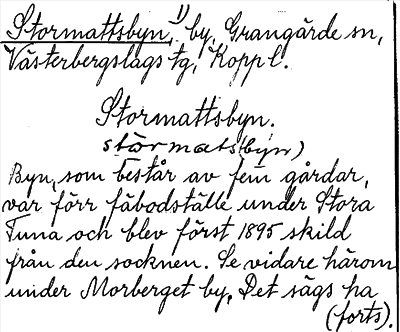 Stormattsbyn,¹⁾ by, Grangärde sn,
Västerbergslags tg, Kopp l.
Stormattsbyn.
stormatsbyn)
Byn, som består av fem gårdar,
var förr fäbodställe under Stora
Tuna och blev först 1895 skild
från den socknen. Se vidare härom
under Morberget by. Det sägs ha
(forts).